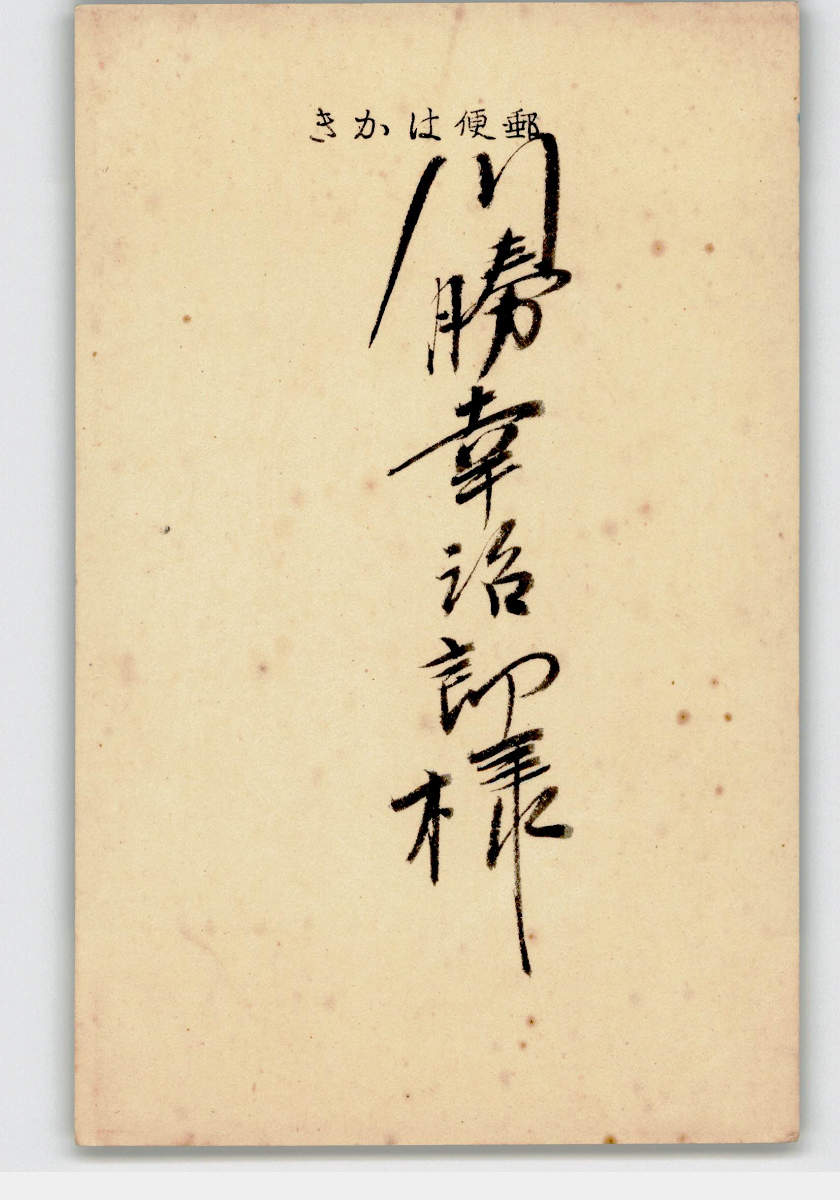 郵便はかき
川勝幸治郎様